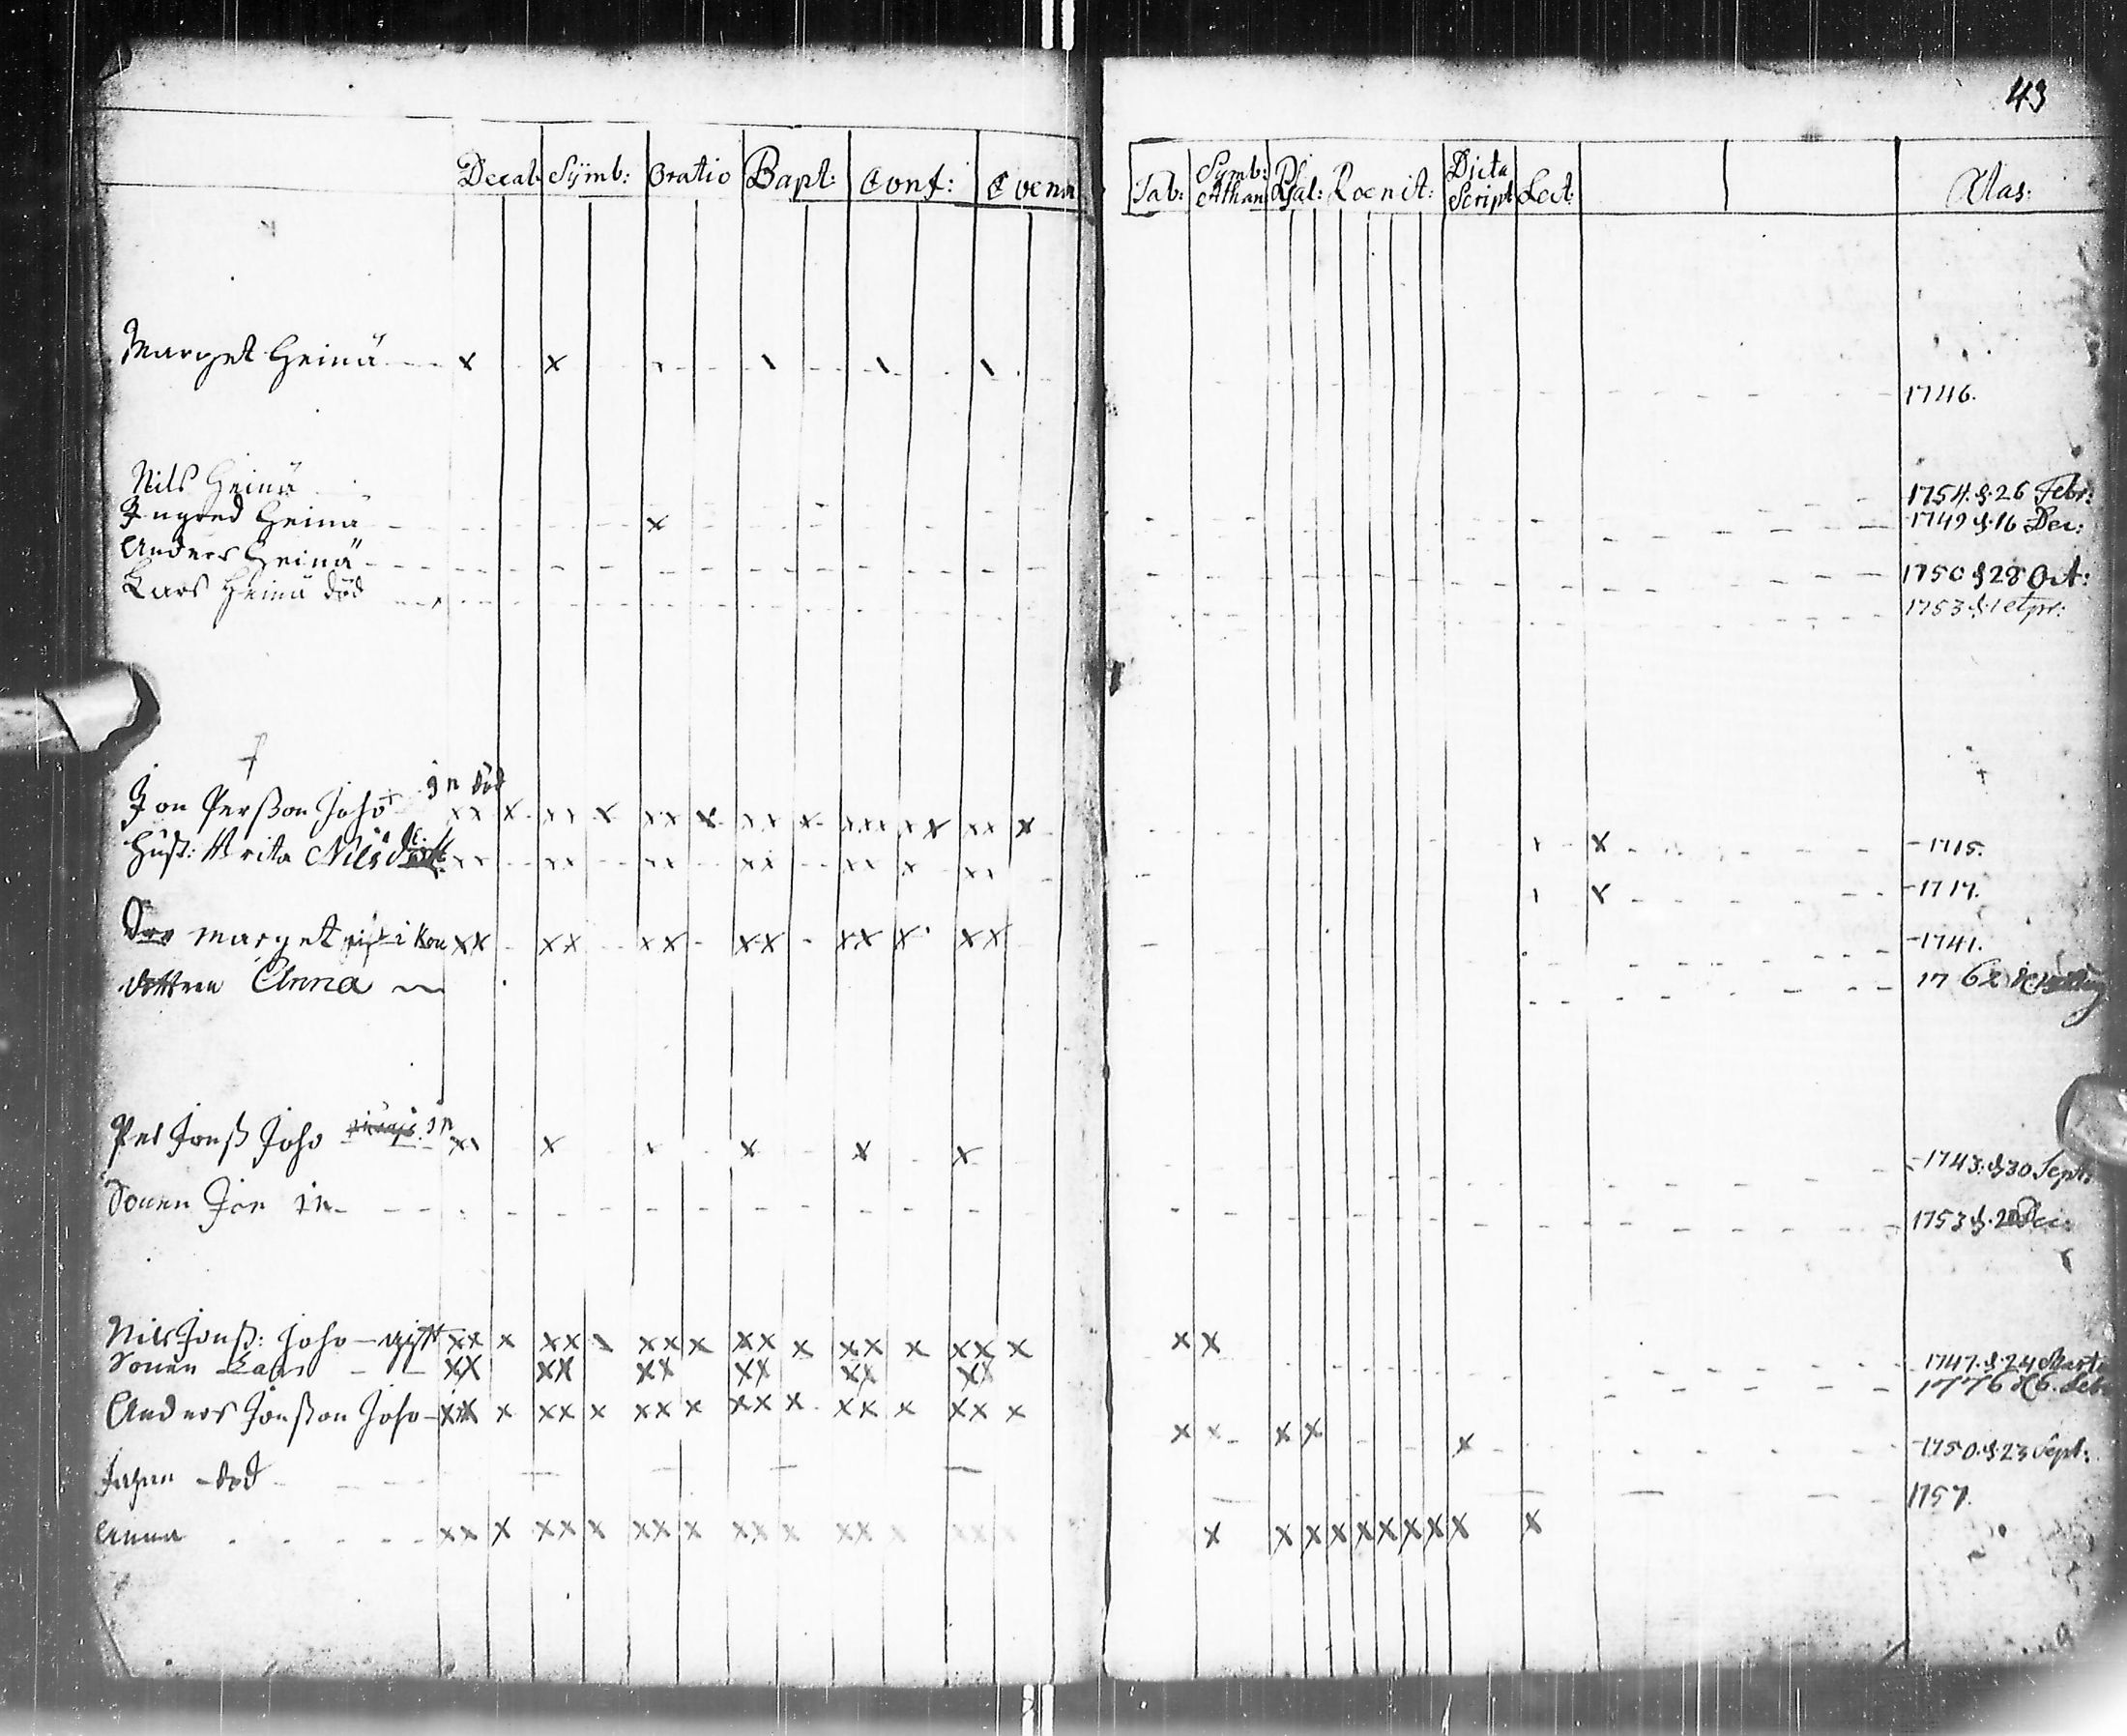 43
Decal: Sÿmb: Oratio Bapt: Conf: Coena
Tab: Symb: Athan: Psal: Poenit: Dicta Script Lect: Ætas:
Marget Heinä x x 1746.
Nils Heinä 1754. d. 26 Febr:
Ingred Heinä x 1749 d. 16 Dec:
Anders Heinä 1750 d 28 Oct:
Lars Heinä död 1753. d. 1 Apr:
Jon Perßon Joho + in död xx x xx x xx x xx x xxx xx xx x x 1715.
Hust: Brita Nils xx xx xx xx xx x xx x 1717.
Marget gift i xx xx xx xx xx x xx 1741.
dottren Anna 1762
Per Jonß Joho in x x x x x 1743. d 30 Sept:
Sonen Jon in 1753 d. 20 Dec:
Nils Jonß: Joho gift xx x xx xx x xx x xx x xx x x x 1747. d. 24 Marti
Sonen Lars xx xx xx xx xx xx 1776 d 6. Feb
Anders Jonßon Joho xx x xx x xx x xx x xx x xx x x x x x x 1750. d 23 Sept:
Johan död 1757.
Anna xx x xx x xx x xx x xx x xx x x x x x x x x x x x